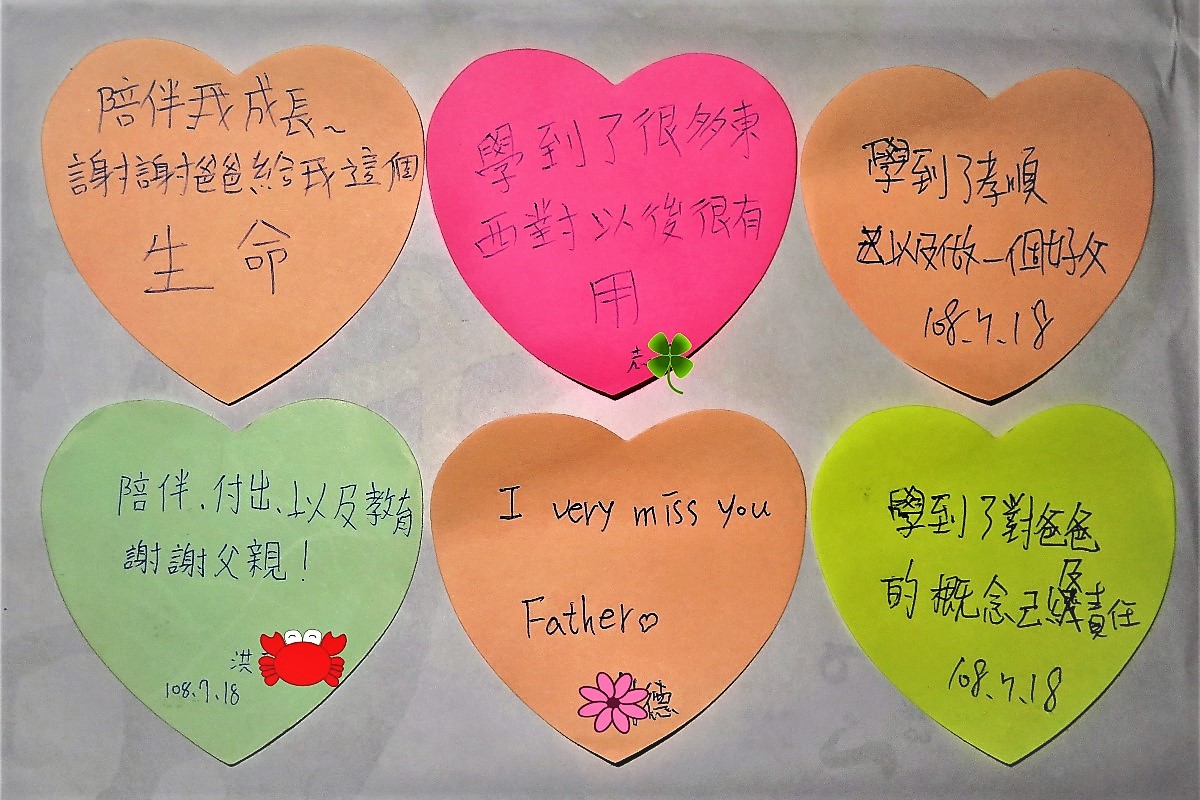 陪伴我成長~
謝謝爸爸給我這個
生命
學到了很多東
西對以後很有
用
學到了孝順
以及做一個好父
108.7.18
陪伴、付出、以及教育
謝謝父親!
洪
108.7.18
I very miss you
Father♡
德
學到了對爸爸
的概念己及責任
108.7.18